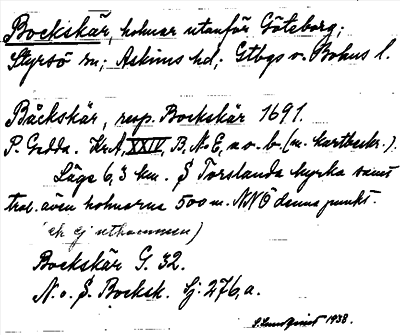 Bockskär, holmar utanför Göteborg;
Styrsö sn; Askims hd; Gtbgs o. Bohus l.
Båckskär, resp. Bockskär 1691.
P. Gedda. KrA, XXIV, B, N:o E, a o. b. (m. kartbeskr.).
Läge 6,3 km. S Torslanda kyrka samt
trol. även holmarna 500 m. NNÖ denna punkt.
(ek ej utkommen)
Bockskär G. 32.
N. o. S. Bocksk. Sj: 276, a.
S. Lundqvist 1938.